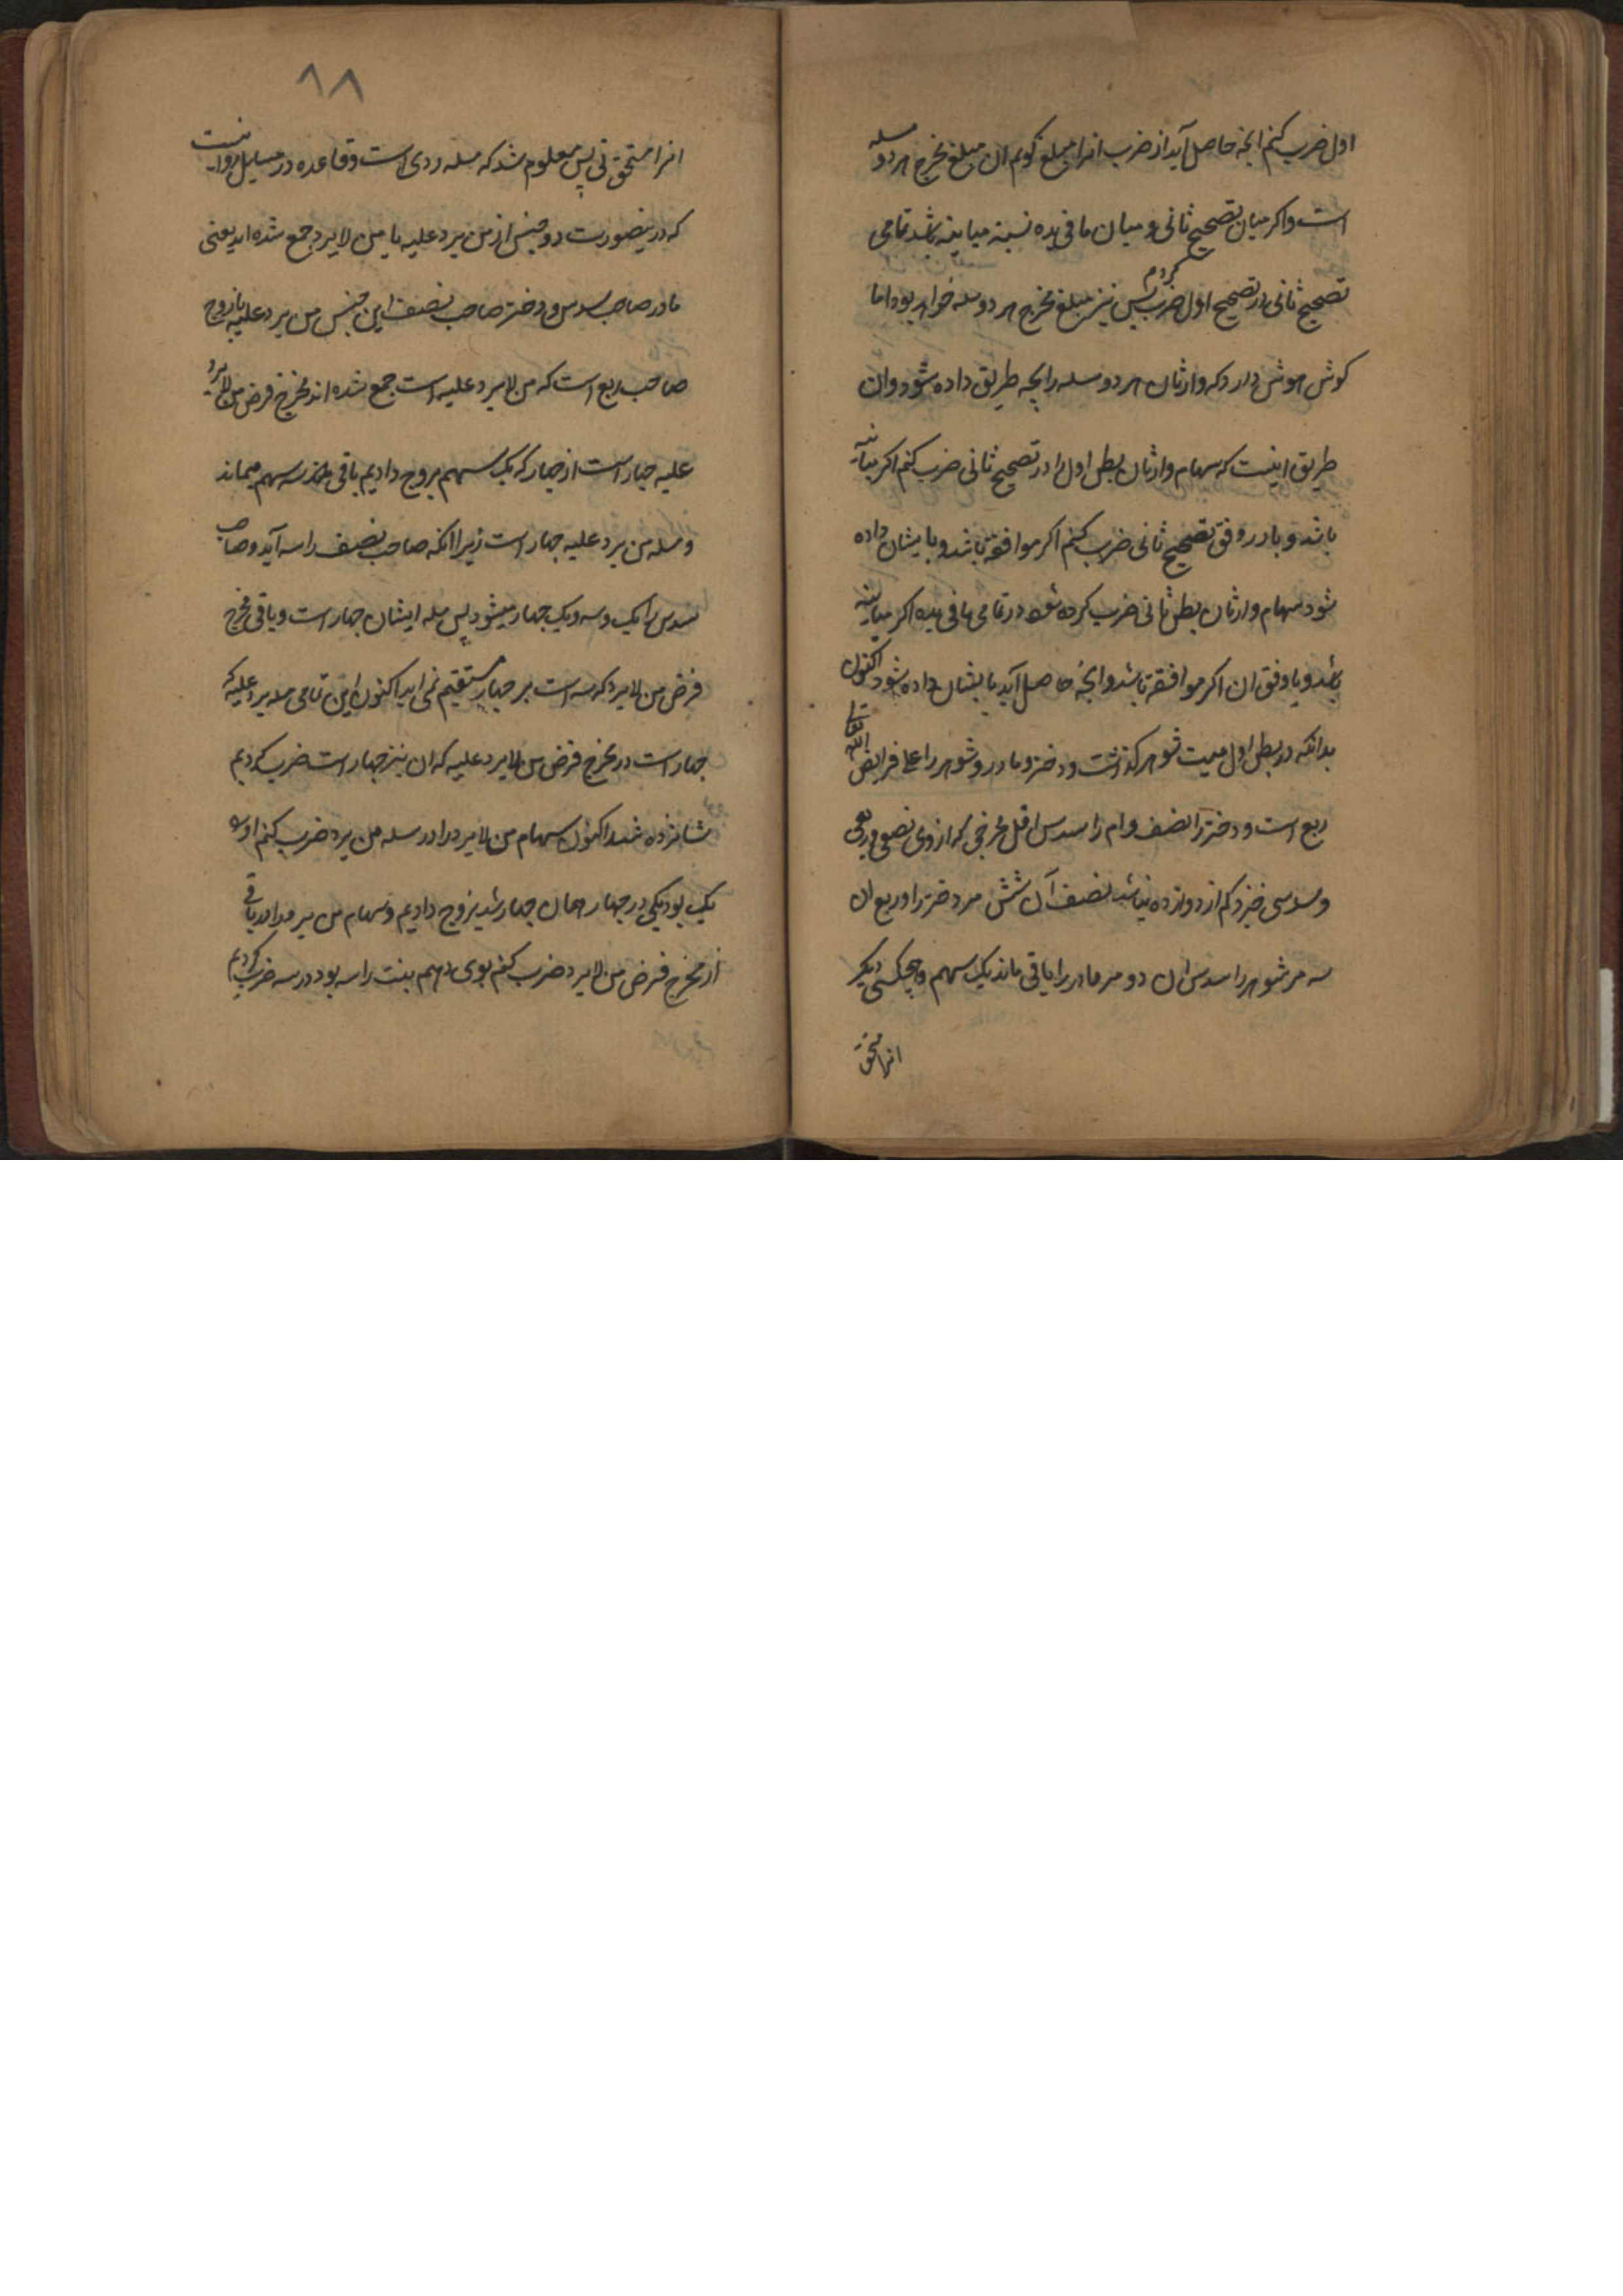 اول ضرب کنم انچه حاصل آید از ضرب انرا مبلغ کویم ان مبلغ مخرج هر دو مسله
است و اکر میان تصحیح ثانی و میان ما فی یده نسبة مباینه باشد تمامی
تصحیح ثانی در تصحیح اول ضرب کردم پس نیز مبلغ مخرج هر دو مسله خواهد بود اما
کوش هوش دار که وارثان هر دو مسله را بچه طریق داده شود و ان
طریق اینست که سهام وارثان بطن اول را در تصحیح ثانی ضرب کنم اکر مباینه
باشد و یا در وفق تصحیح ثانی ضرب کنم اکر موافقه باشد و بایشان داده
شود سهام وارثان بطن ثانی ضرب کرده شود در تمامی ما فی یده اکر مباینه
باشد و یا وفق ان اکر موافقه باشد و انچه حاصل آید بایشان داده شود اکنون
بدانکه در بطن اول میت شوهر کذاشت و دختر و مادر و شوهر را علی فرایض الله تعالی
ربع است و دختر را نصف و ام را سدس اقل مخرجی که از وی نصفی و ربعی
و سدسی خیزد کم از دوازده نباشد نصف آن شش مر دختر را و ربع ان
سه مر شوهر را سدس ان دو مر مادر را باقی ماند یک سهم و هیچکسی دیکر
انرا مستحق
۹۸
انرا مستحق نی پس معلوم شد که مسله ردی است و قاعده در مسایل رد انست
که درینصورت دو جنس از من یرد علیه با من لا یرد جمع شده اند یعنی
مادر صاحب سدس و دختر صاحب نصف این جنس من یرد علیه با زوج
صاحب ربع است که من لا یرد علیه است جمع شده اند مخرج فرض من لا یرد
علیه چهار است از چهار که یک سهم بزوج دادیم باقی سه سهم میماند
و مسله من یرد علیه چهار است زیرا انکه صاحب نصف را سه آید و صاحب
سدس را یک و سه و یک چهار میشود پس مسله ایشان چهار است و باقی مخرج
فرض من لا یرد که سه است بر چهار مستقیم نمی اید اکنون این تمامی مسله یرد علیه که
چهار است در مخرج فرض من لا یرد علیه که ان نیز چهار است ضرب کردیم
شانزده شد اکنون سهام من لا یرد را در مسله من یرد ضرب کنم او را
یک بود یکی در چهار همان چهار شد بزوج دادیم و سهام من یرد را در باقی
از مخرج فرض من لا یرد ضرب کنم بوی دهم بنت را سه بود در سه ضرب کردیم